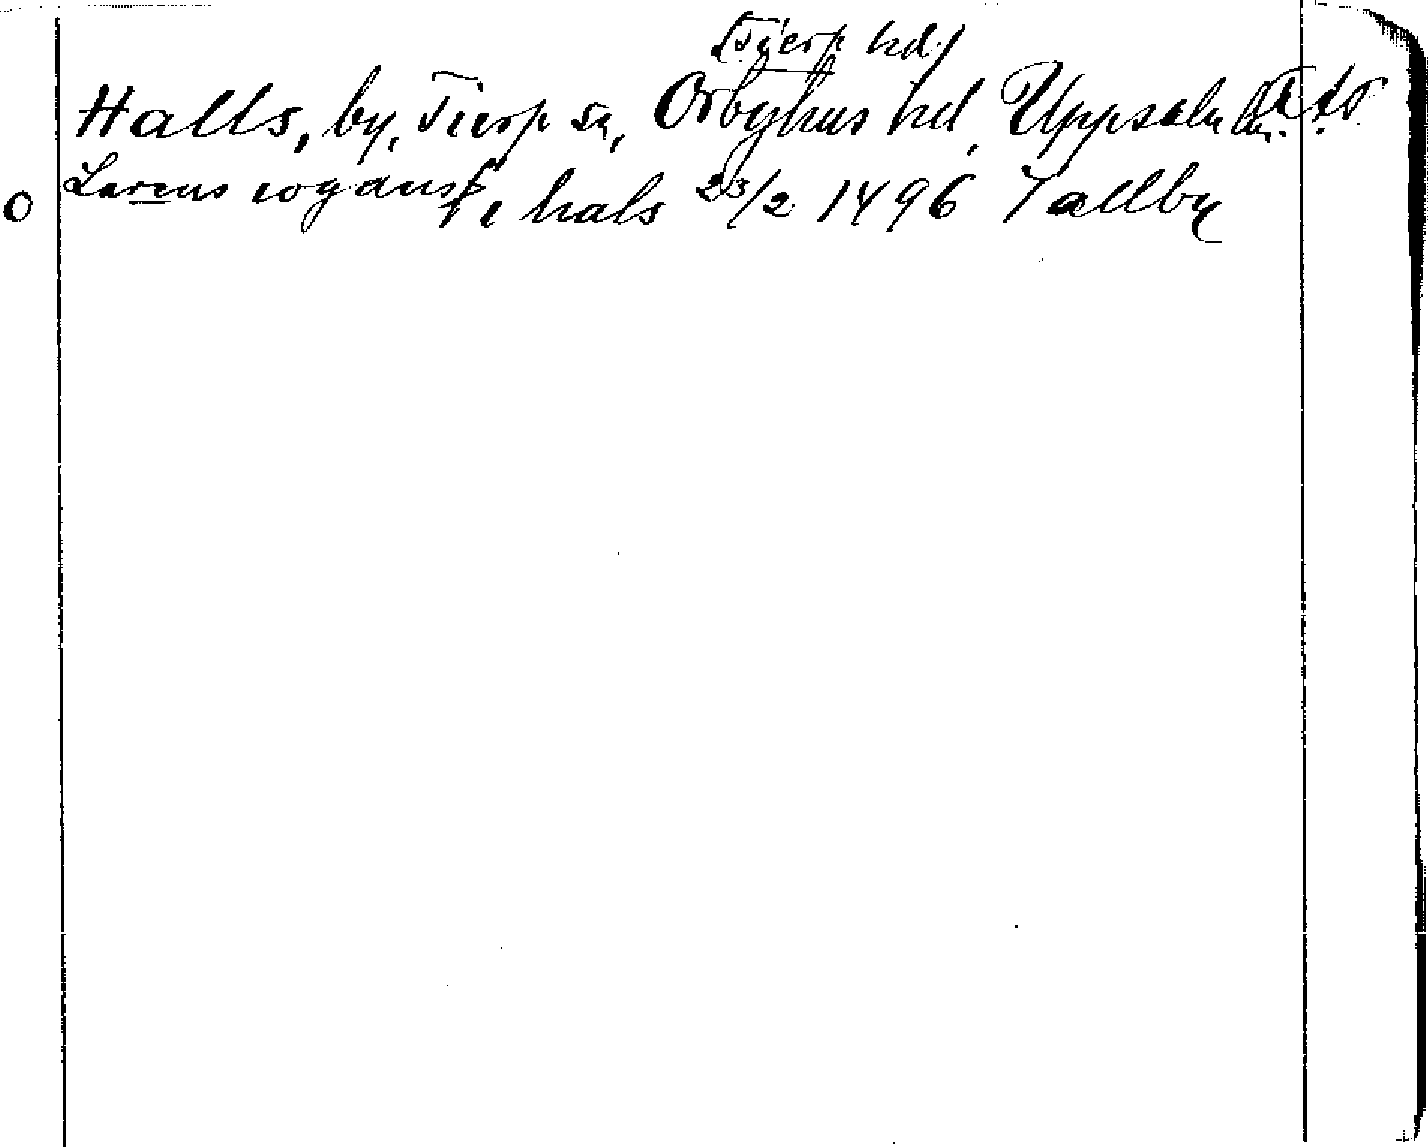 (Tierp hd)
Halls, by, Tierp sn, Örbyhus hd, Uppsala län
o Larens iogansß i hals 23/2 1496 Tallby